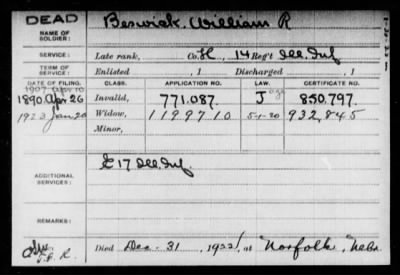 DEAD
Beswick, William R
NAME OF
SOLDIER:
SERVICE:
Late rank, Co. H, 14 Reg't Ill. Inf
TERM OF
SERVICE:
Enlisted , 1 Discharged , 1
DATE OF FILING. CLASS. APPLICATION NO. LAW. CERTIFICATE NO.
1907 Apr 10
1890 Apr 26 Invalid, 771.087. J 850.797.
1923 Jan 20 Widow, 1199710 5-1-20 932,845
Minor,
ADDITIONAL
SERVICES:
E 17 Ill. Inf.
REMARKS:
Died Dec - 31, 1922, at Norfolk, Nebr.